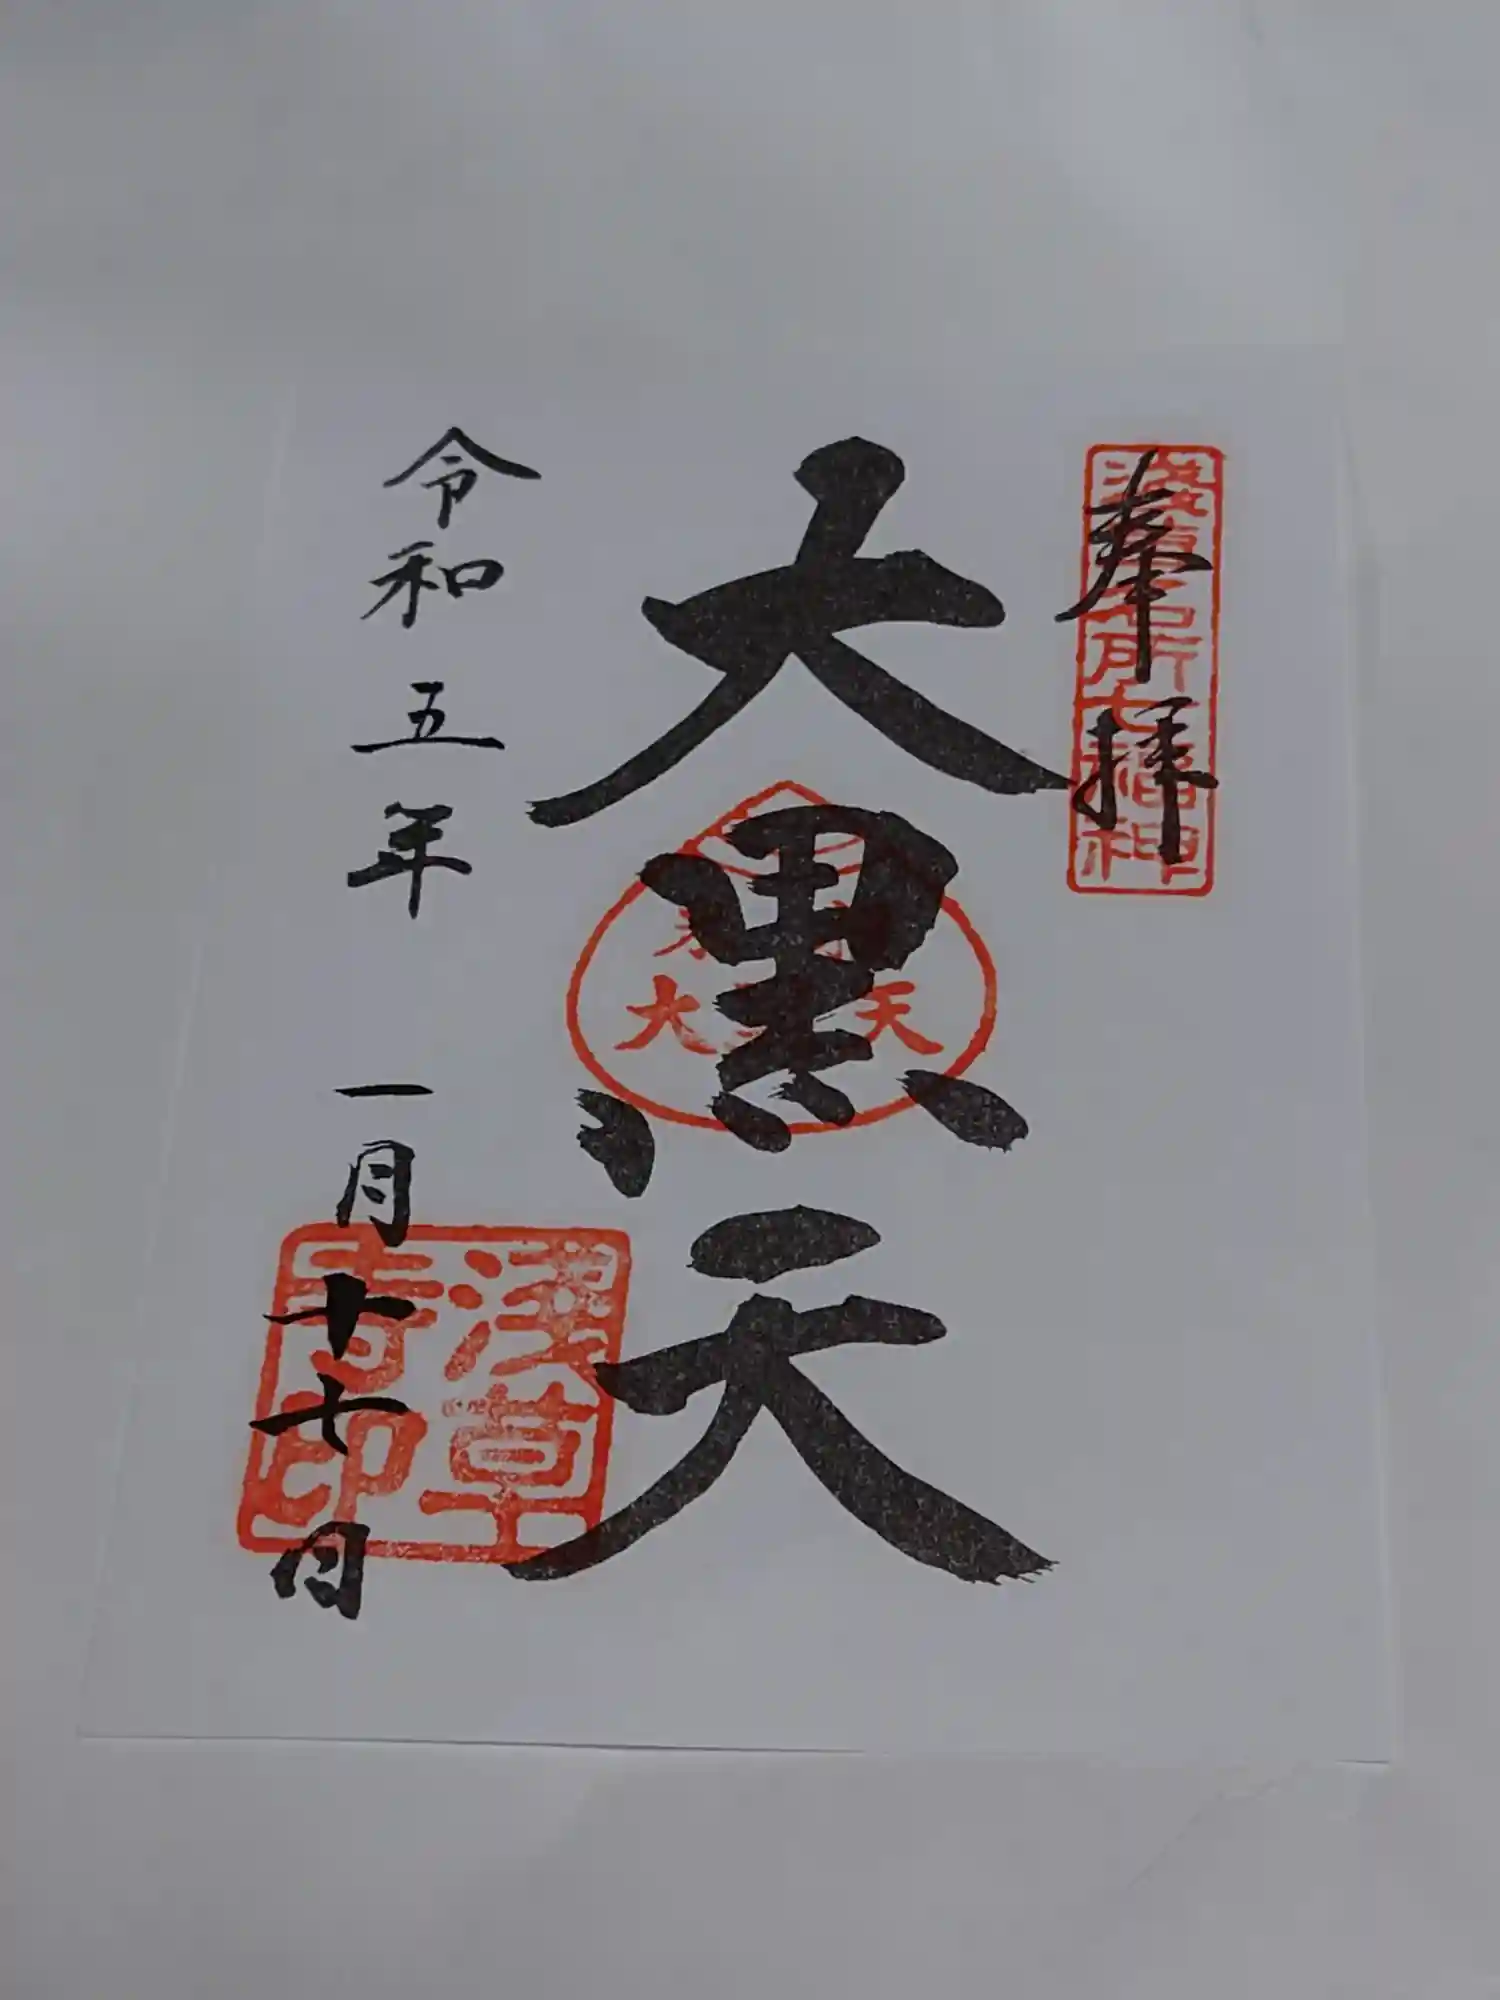 奉拝
浅草名所七福神
大黒天
大黒天
令和五年 一月十七日
浅草
寺印